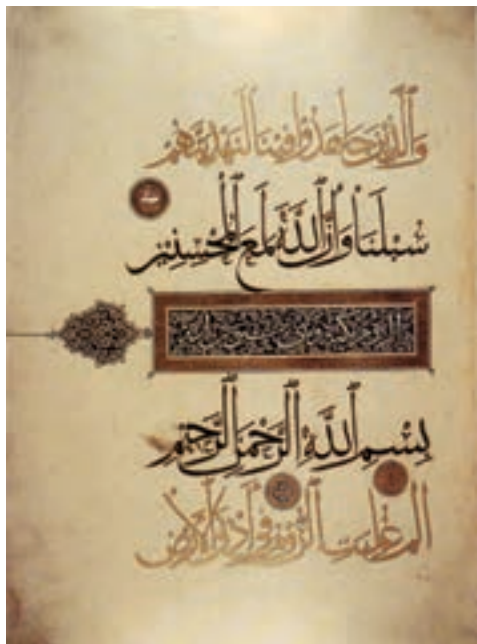 وَالَّذِينَ جَاهَدُوا فِينَا لَنَهْدِيَنَّهُمْ
سُبُلَنَا وَإِنَّ اللَّهَ لَمَعَ الْمُحْسِنِينَ
بِسْمِ اللَّهِ الرَّحْمَنِ الرَّحِيمِ
الم غُلِبَتِ الرُّومُ فِي أَدْنَى الْأَرْضِ